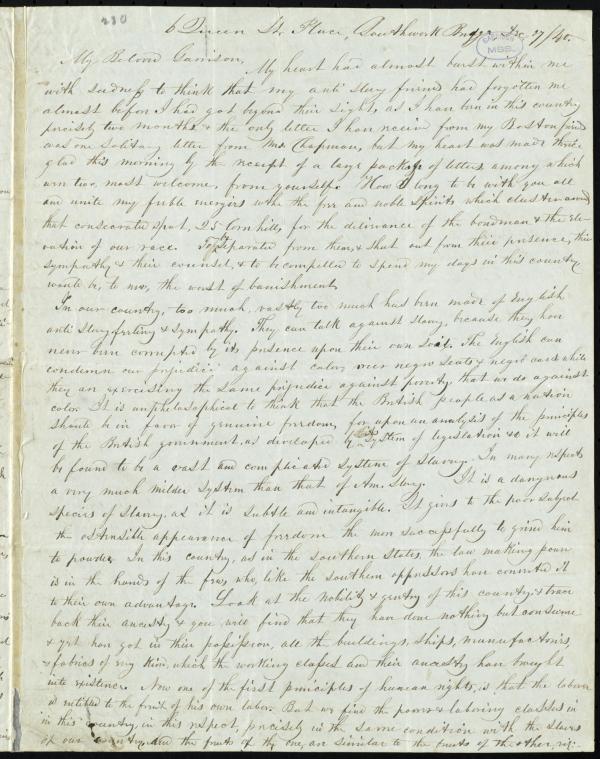 230
6 Queen St. Place, Southwark Bridge, Dec 17/40.
MSS.
My Beloved Garrison,
My heart had almost burst within me
with sadness to think that my anti slavery friends had forgotten me
almost before I had got beyond their sight, as I have been in this country
precisely two months & the only letter I have receivd from my Boston friends
was one solitary letter from Mrs. Chapman, but my heart was made thrice
glad this morning by the receipt of a large package of letters among which
were two, most welcome, from yourself. How I long to be with you all
and unite my feeble energies with the free and noble spirits which cluster around
that consecrated spot, 25 Cornhill, for the deliverance of the bondman & the ele-
vation of our race. To be separated from them, & shut out from their presence, their
sympathy & their counsel, & to be compelled to spend my days in this country
would be, to me, the worst of banishment.
In our country, too much, vastly too much has been made of English
anti slavery feeling & sympathy. They can talk against slavery, because they have
never been corrupted by its presence upon their own soil. The English can
condemn our prejudice against color, over negro seats & negro cars while
they are exercising the same prejudice against poverty that we do against
color. It is unphilosophical to think that the British people as a nation
should be in favor of genuine freedom, for upon an analysis of the principles
of the British government, as developed by its system of legislation &c it will
be found to be a vast and complicated system of slavery. In many respects
a very much milder system than that of Am. Slavery. It is a dangerous
species of slavery, as it is subtle and intangible. It gives to the poor subject
the ostensible appearance of freedom the more successfully to grind him
to powder. In this country, as in the southern States, the law making power
is in the hands of the few, who, like the southern oppressors have converted it
to their own advantage. Look at the nobility & gentry of this country & trace
back their ancestry & you will find that they have done nothing but consume
& yet have got in their possession, all the buildings, ships, manufactories,
& fabrics of every kind, which the working classes and their ancestry have brought
into existence. Now one of the first principles of human rights, is that the laborer
is entitled to the fruit of his own labor. But we find the poor & laboring classes in
in this country, in this respect, precisely in the same condition with the slaves
of our country, and the fruits of the one, are similar to the fruits of the other, viz: